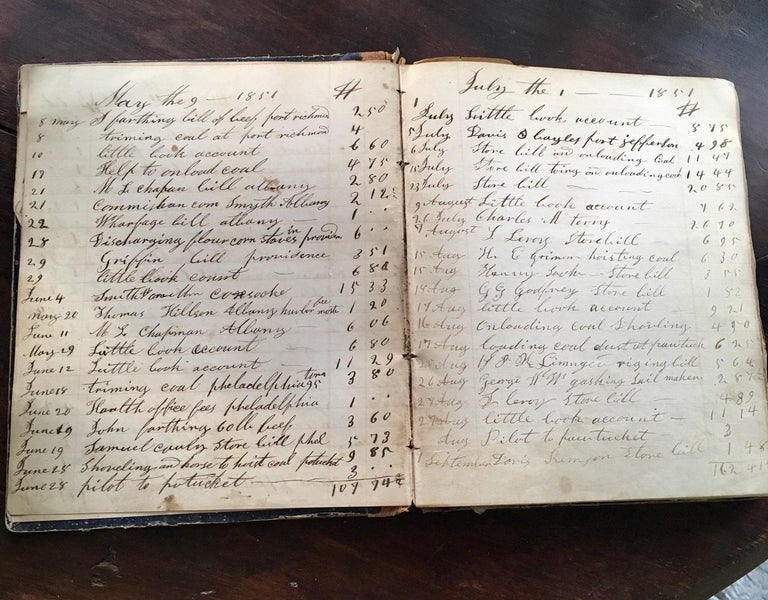 May the 9 — 1851 #
8 may S farthings bill of beef port richmond 2 50
8 triming coal at port richmond 4
10 little book account 6 60
17 Help to onload coal 4 75
21 M L Chapan bill albany 2 80
21 Commishan com Smyth Albany 2 12
22 Wharfage bill albany 1 ..
28 Discharging flour corn staves in providen 6 ..
29 Griffin bill providence 3 51
29 little book count 6 82
June 4 Smith 15 33
May 20 Thomas Hillson Albany harbor master fee 1 20
June 11 M L Chapman Albany 6 06
May 29 Little book account 6 80
June 12 Little book account — 11 29
June 18 triming coal pheladelphia tons 95 3 80
June 20 Harlth office fees philadelphia 1 ..
June 19 John farthing 60 lb beef 3 60
June 19 Samuel Store bill phel 5 73
June 28 Shoveling and horse to hoist coal potucket 9 85
June 28 pilot to potucket — 3 ..
109 94
July the 1 — 1851 #
1 July Little book account — 8 75
5 July Davis & bayles port jefferson 4 98
6 July Store bill and onloading coal 11 47
July Store bill on onloading coal 14 44
23 July Store bill — 20 85
9 August Little book account
26 July Charles M terry 7 62
7 August L Leroy Store bill 26 70
15 Aug H E hoisting coal 6 95
15 Aug Store bill 6 30
19 Aug G G Godfrey Store bill 3
17 Aug little book account 1 82
16 Aug Onloading coal Shovling 9 21
17 Aug loading coal dust at pawtuck 4 90
Aug riging bill 6 25
26 Aug George Sail maker 5 64
Aug L Leroy Store bill — 2 87
Aug little book account — 4 89
Aug Pilot to pawtucket 11 14
3
September Davis Store bill 1 48
162 41